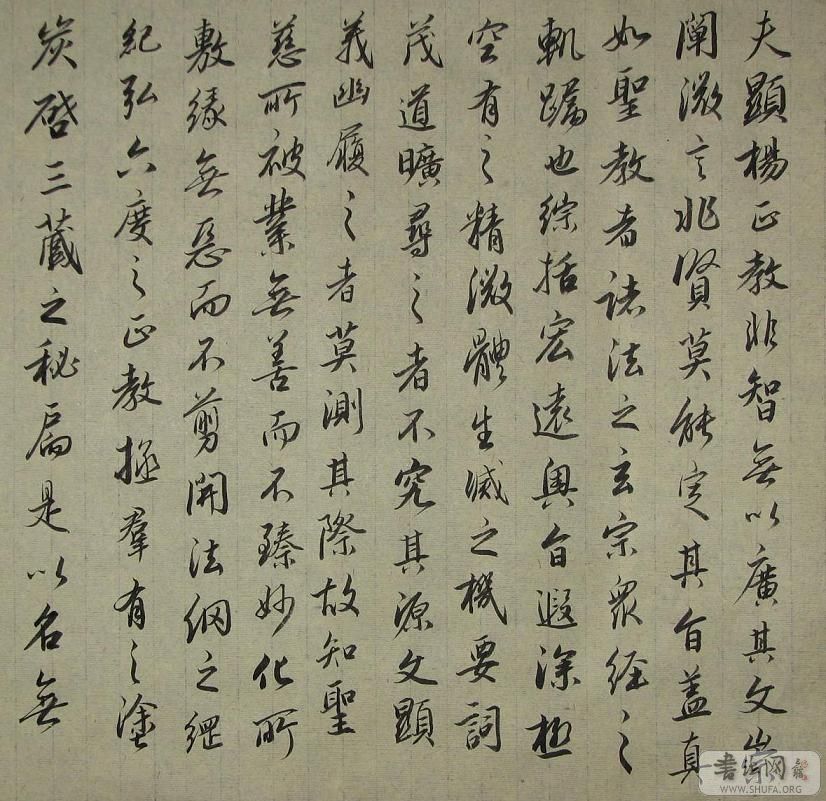 夫顯楊正教非智無以廣其文崇
闡微言非賢莫能定其旨蓋真
如聖教者諸法之玄宗眾經之
軌躅也綜括宏遠奧旨遐深極
空有之精微體生滅之機要詞
茂道曠尋之者不究其源文顯
義幽履之者莫測其際故知聖
慈所被業無善而不臻妙化所
敷緣無惡而不剪開法網之綱
紀弘六度之正教拯羣有之塗
炭啓三藏之秘扃是以名無
WWW.SHUFA.ORG